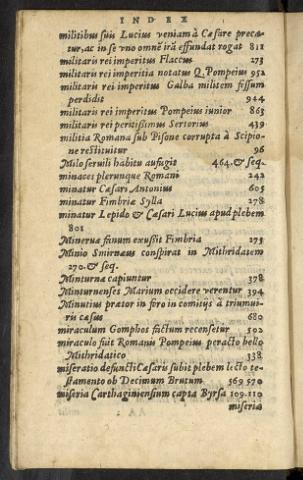 INDEX
militibus suis Lucius veniam à Cæsare preca-
tur, ac in se vno omnē irā effundat rogat 811
militaris rei imperitus Flaccus 273
militaris rei imperitia notatus Q. Pompeius 952
militaris rei imperitus Galba militem fessum
perdidit 944
militaris rei imperitus Pompeius iunior 863
militaris rei peritissimus Sertorius 439
militia Romana sub Pisone corrupta à Scipio-
ne restituitur 96
Milo seruili habitu aufugit 464. & seq.
minaces plerunque Romani 242
minatur Cæsari Antonius 605
minatur Fimbriæ Sylla 278
minatur Lepido & Cæsari Lucius apud plebem
801
Mineruæ fanum exussit Fimbria 275
Minio Smirnæus conspirat in Mithridatem
270. & seq.
Minturnæ capiuntur 378
Minturnenses Marium occidere verentur 394
Minutius prætor in foro in comitijs à triumui-
ris cæsus 680
miraculum Gomphos factum recensetur 502
miraculo fuit Romanis Pompeius peracto bello
Mithridatico 338
miseratio defuncti Cæsaris subit plebem lecto te-
stamento ob Decimum Brutum 569 570
miseria Carthaginiensium capta Byrsa 109.110
miseria